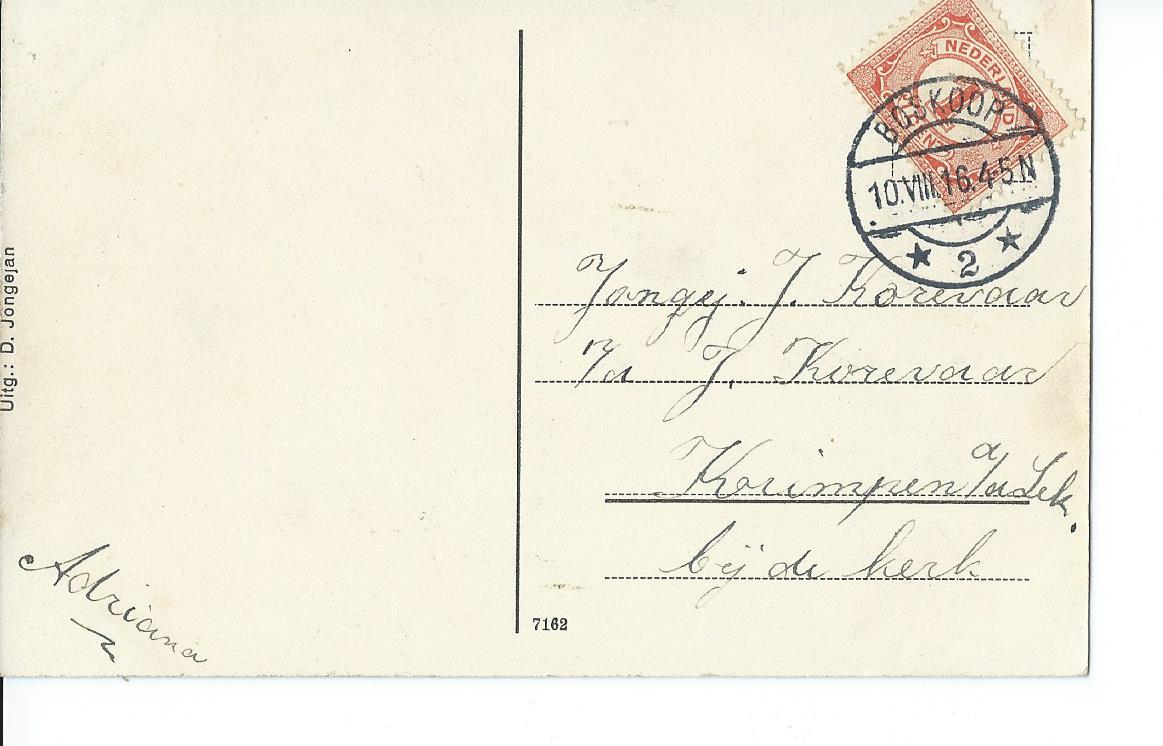 NEDERLAND
BOSKOOP
10.VIII.16.4-5N
2
Jongej. J. Korevaar
p/a J. Korevaar
Krimpen a/d Lek.
bij de kerk
Uitg.: D. Jongejan
Adriana
7162